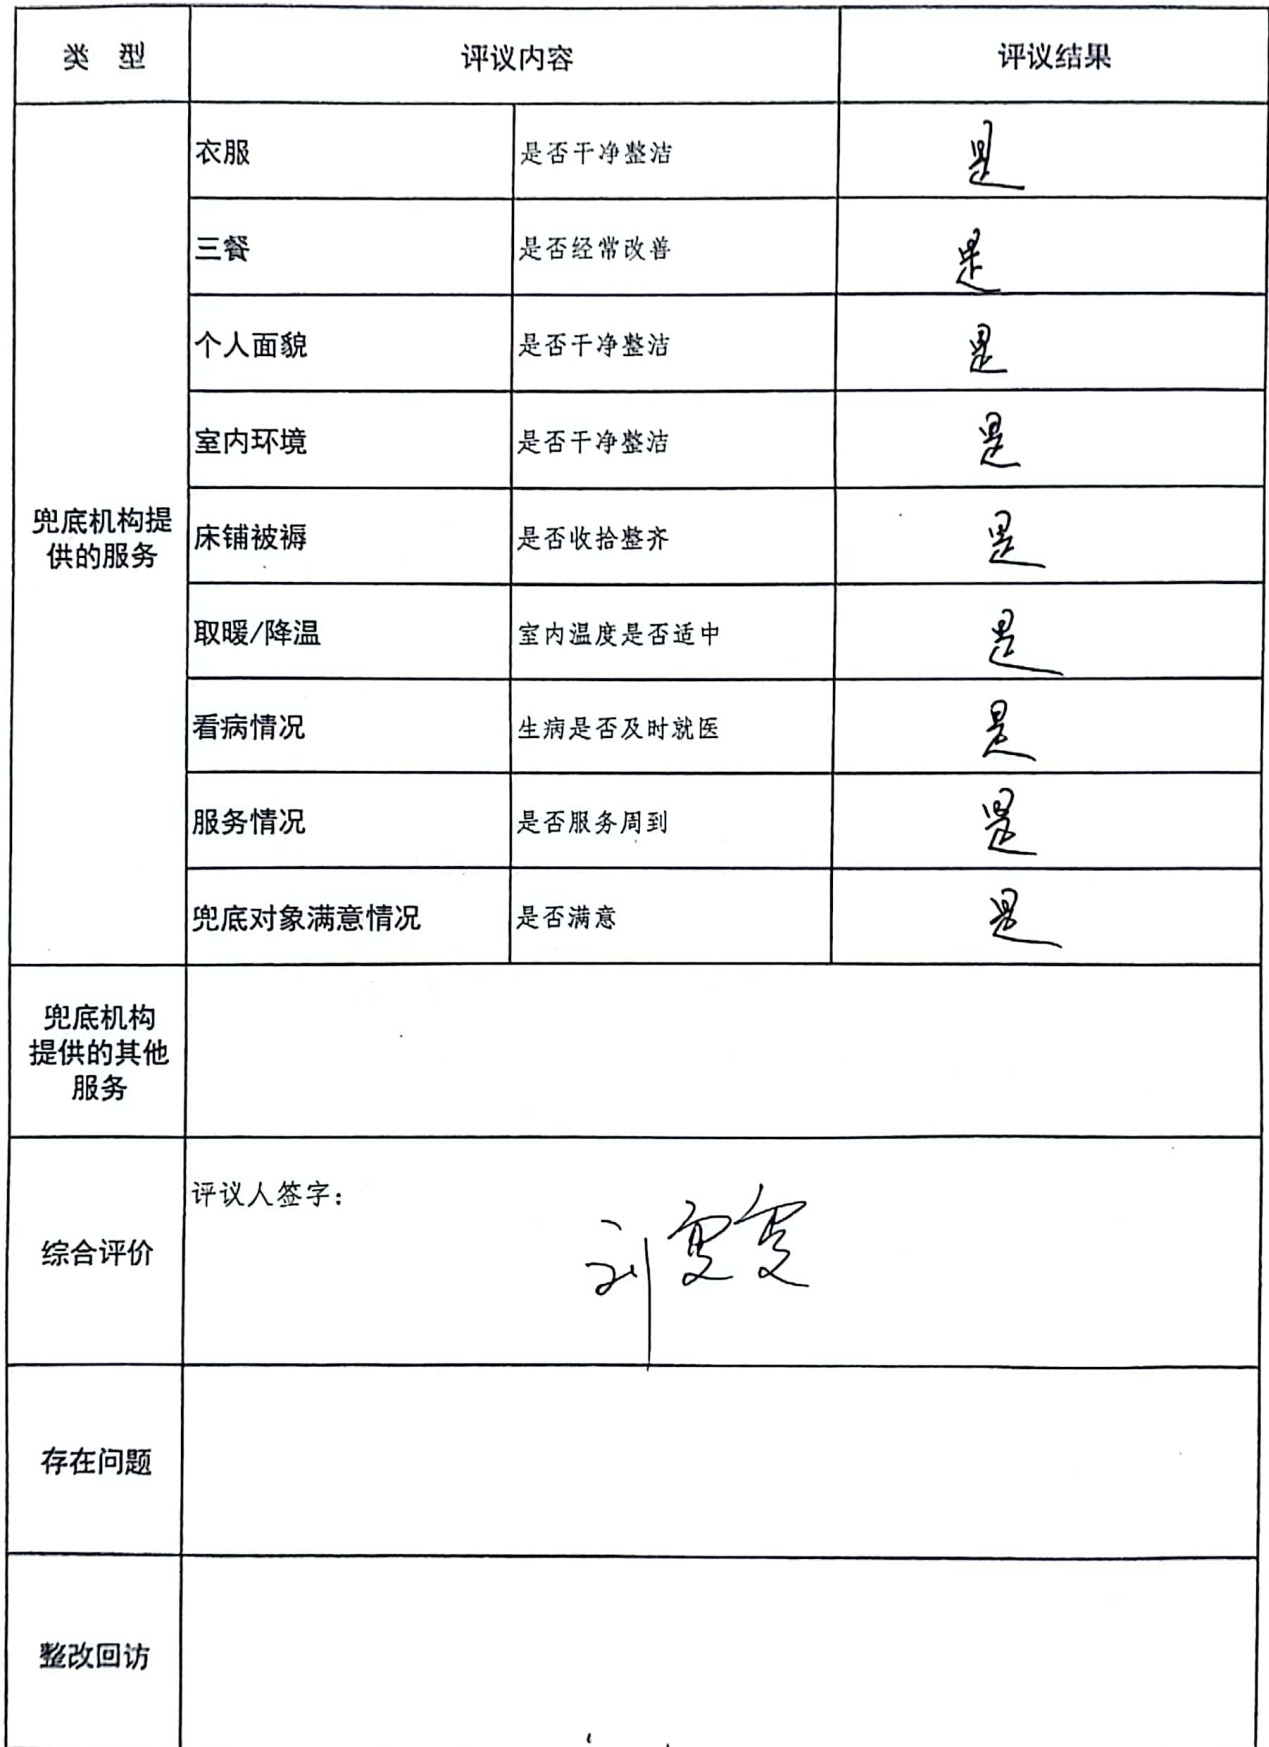 类 型 评议内容 评议结果
兜底机构提
供的服务
衣服 是否干净整洁 是
三餐 是否经常改善 是
个人面貌 是否干净整洁 是
室内环境 是否干净整洁 是
床铺被褥 是否收拾整齐 是
取暖/降温 室内温度是否适中 是
看病情况 生病是否及时就医 是
服务情况 是否服务周到 是
兜底对象满意情况 是否满意 是
兜底机构
提供的其他
服务
综合评价
评议人签字：
刘
存在问题
整改回访